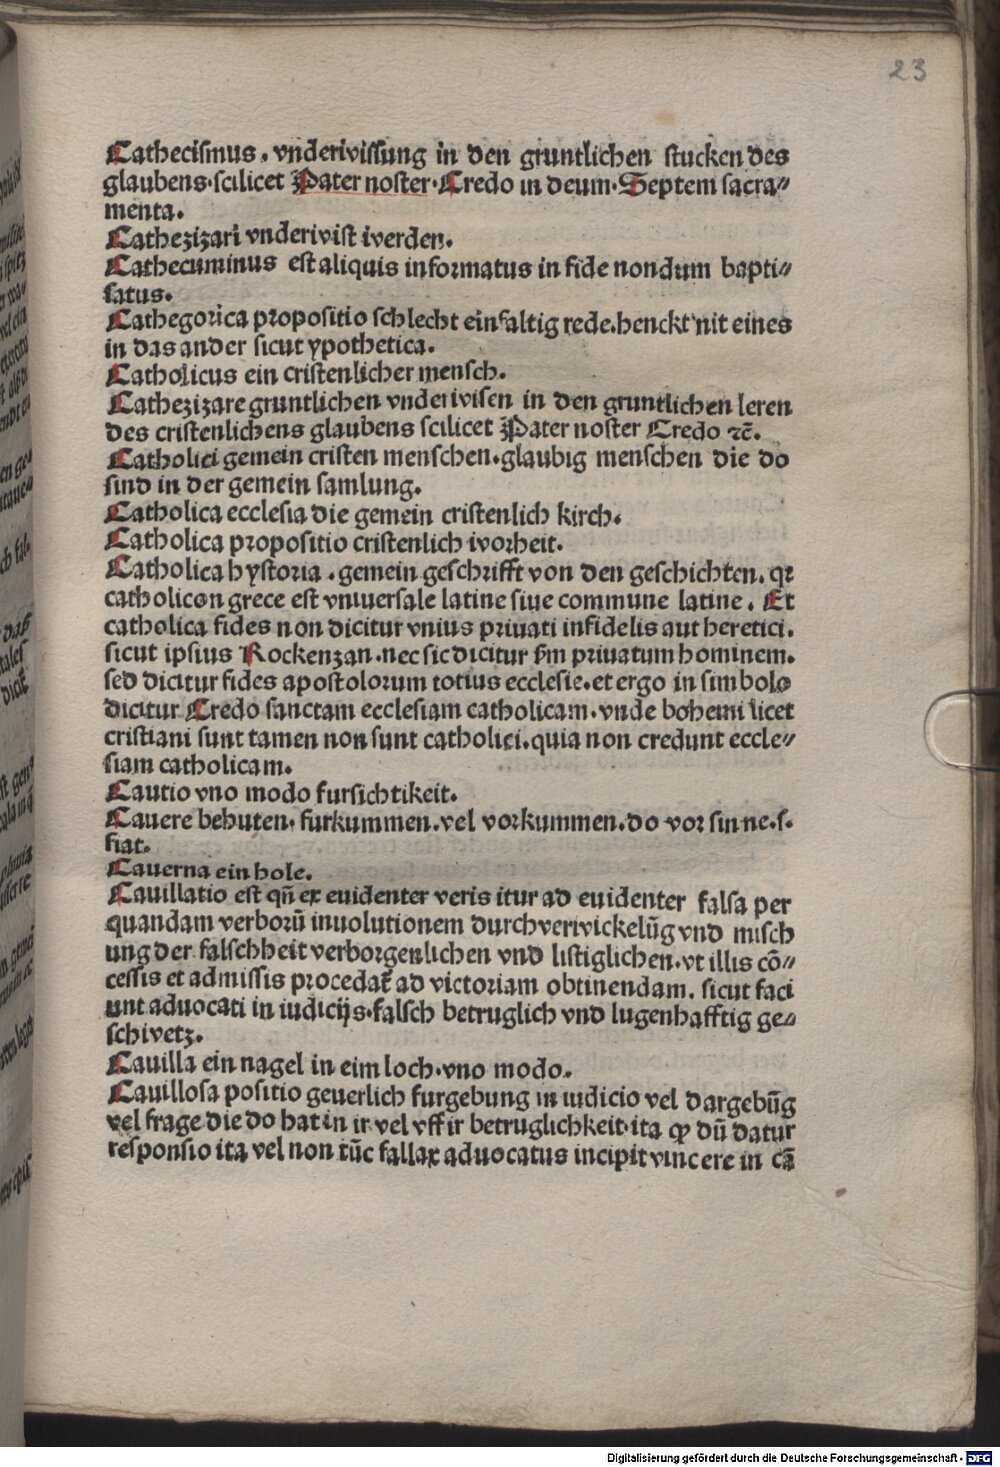 23
Cathecismus . vnderwissung in den gruntlichen stucken des
glaubens·scilicet Pater noster·Credo in deum·Septem sacra⸗
menta.
Cathezizari vnderwist werden.
Cathecuminus est aliquis informatus in fide nondum bapti⸗
satus.
Cathegorica propositio schlecht einfaltig rede.henckt nit eines
in das ander sicut ypothetica.
Catholicus ein cristenlicher mensch.
Cathezizare gruntlichen vnderwisen in den gruntlichen leren
des cristenlichens glaubens scilicet Pater noster Credo ⁊c̄.
Catholici gemein cristen menschen.glaubig menschen die do
sind in der gemein samlung.
Catholica ecclesia die gemein cristenlich kirch.
Catholica propositio cristenlich worheit.
Catholica hystoria . gemein geschrifft von den geschichten. qꝛ
catholicon grece est vniuersale latine siue commune latine. Et
catholica fides non dicitur vnius priuati infidelis aut heretici.
sicut ipsius Rockenzan.nec sic dicitur ẜm priuatum hominem.
sed dicitur fides apostolorum totius ecclesie.et ergo in simbolo
dicitur Credo sanctam ecclesiam catholicam.vnde bohemi licet
cristiani sunt tamen non sunt catholici.quia non credunt eccle⸗
siam catholicam.
Cautio vno modo fursichtikeit.
Cauere behuten. furkummen.vel vorkummen.do vor sin ne.s.
fiat.
Cauerna ein hole.
Cauillatio est qn̄ ex euidenter veris itur ad euidenter falsa per
quandam verborū inuolutionem durch verwickelūg vnd misch
ung der falschheit verborgenlichen vnd listiglichen.vt illis cō⸗
cessis et admissis procedat̄ ad victoriam obtinendam. sicut faci
unt aduocati in iudicijs.falsch betruglich vnd lugenhafftig ge⸗
schwetz.
Cauilla ein nagel in eim loch.vno modo.
Cauillosa positio geuerlich furgebung in iudicio vel dargebūg
vel frage die do hat in ir vel vff ir betruglichkeit.ita ꝙ dū datur
responsio ita vel non tūc fallax aduocatus incipit vincere in cā
Digitalisierung gefördert durch die Deutsche Forschungsgemeinschaft - DFG